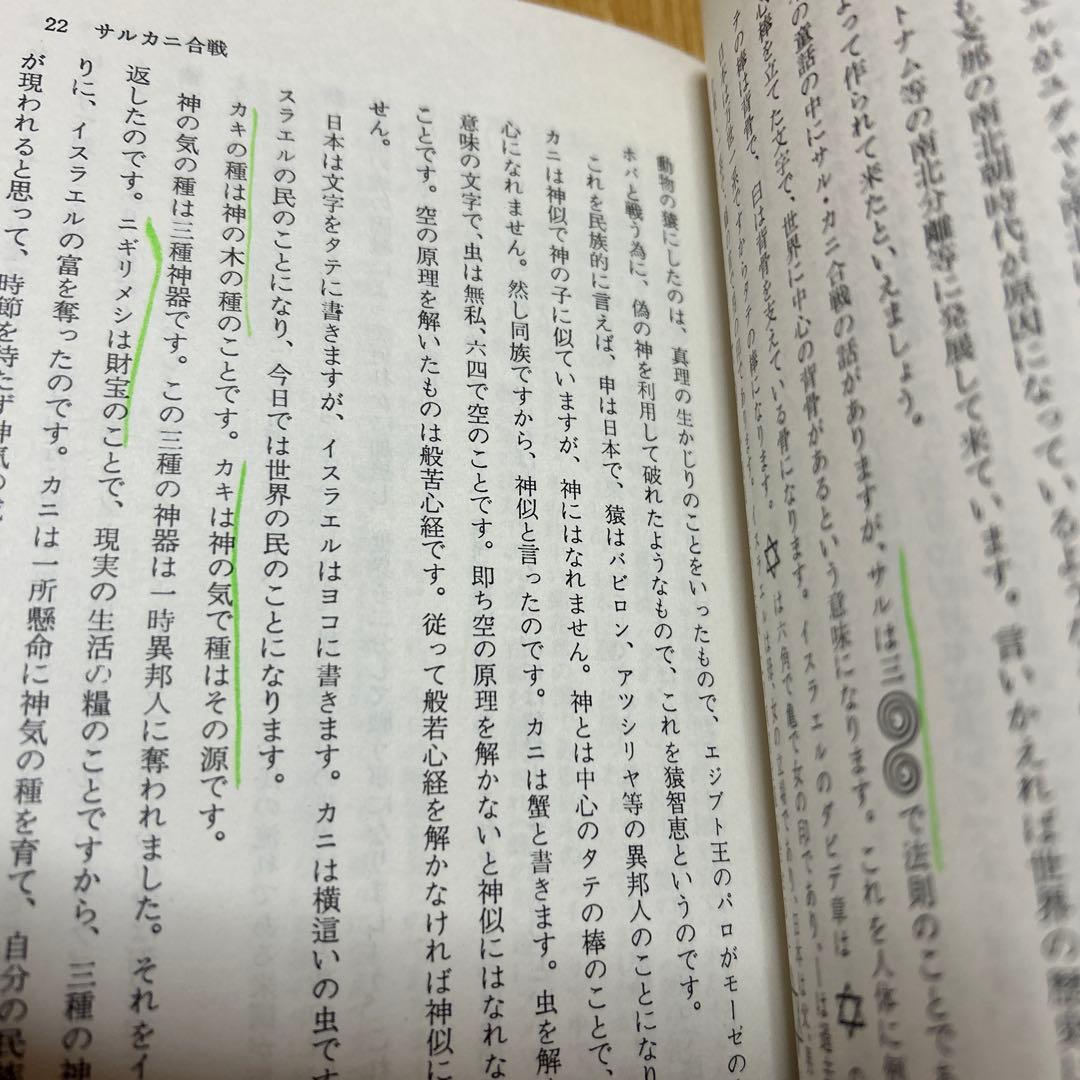 22 サルカニ合戦
エルがユダヤと南北
も支那の南北朝時代が原因になっているような
トナム等の南北分離等に発展して来ています。言いかえれば世界の歴史
よって作られて来たといえましょう。
の童話の中にサル・カニ合戦の話がありますが、サルは三 で法則のことで
心棒を立てた文字で、世界に中心の背骨があるという意味になります。これを人体に例
テの棒は背骨で、臼は背骨を支えている骨になります。イスラエルのダビデ章は✡の
動物の猿にしたのは、真理の生かじりのことをいったもので、エジプト王のパロがモーゼの
ホバと戦う為に、偽の神を利用して破れたようなもので、これを猿智恵というのです。
これを民族的に言えば、申は日本で、猿はバビロン、アツシリヤ等の異邦人のことになり
カニは神似で神の子に似ていますが、神にはなれません。神とは中心のタテの棒のことで、
心になれません。然し同族ですから、神似と言ったのです。カニは蟹と書きます。虫を解
意味の文字で、虫は無私、六四で空のことです。即ち空の原理を解かないと神似にはなれな
ことです。空の原理を解いたものは般苦心経です。従って般若心経を解かなければ神似に
せん。
日本は文字をタテに書きますが、イスラエルはヨコに書きます。カニは横這いの虫です
スラエルの民のことになり、今日では世界の民のことになります。
カキの種は神の木の種のことです。カキは神の気で種はその源です。
神の気の種は三種神器です。この三種の神器は一時異邦人に奪われました。それをイ
返したのです。ニギリメシは財宝のことで、現実の生活の糧のことですから、三種の神
りに、イスラエルの富を奪ったのです。カニは一所懸命に神気の種を育て、自分の民族
が現われると思って、時節を待たず神気の